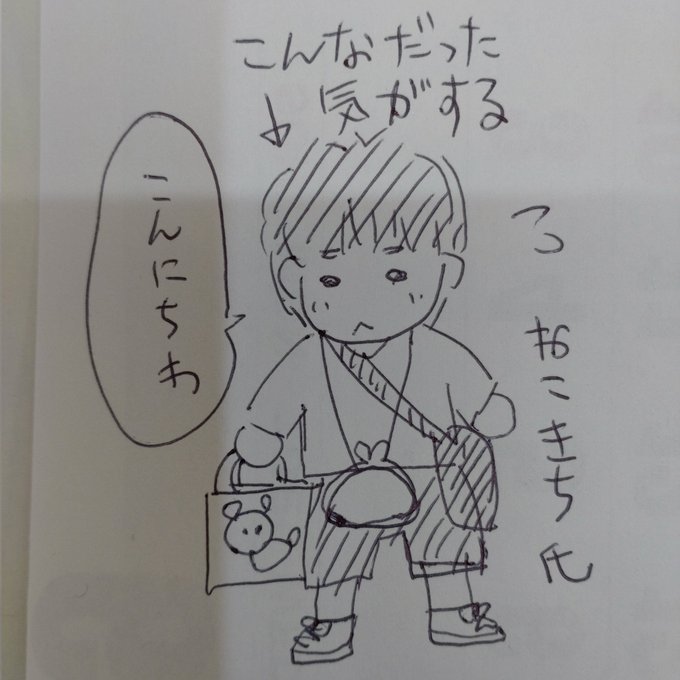 こんなだった
気がする
ねこきち氏
こんにちわ